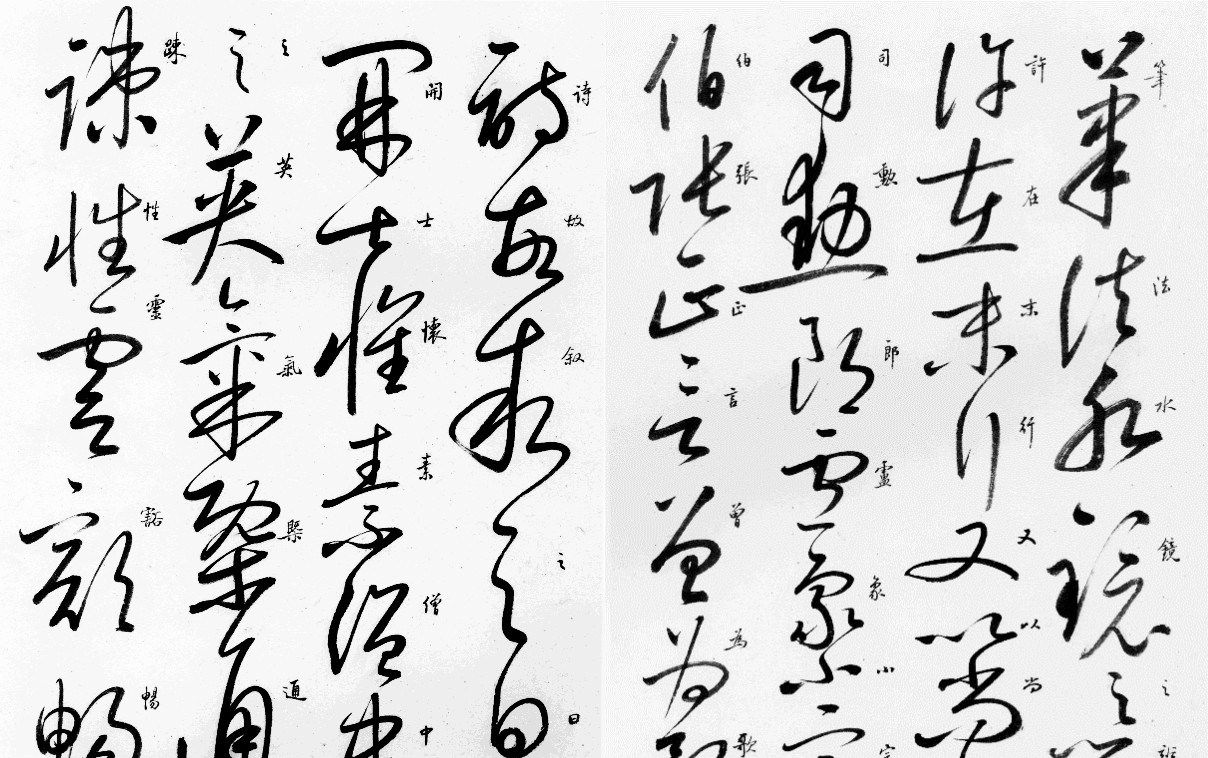 筆法水鏡之辨
許在末行又以尚
司勳郎盧象小宗
伯張正言曾為歌
诗故叙之曰
開士懷素僧中
之英氣槩通
疎性靈豁暢